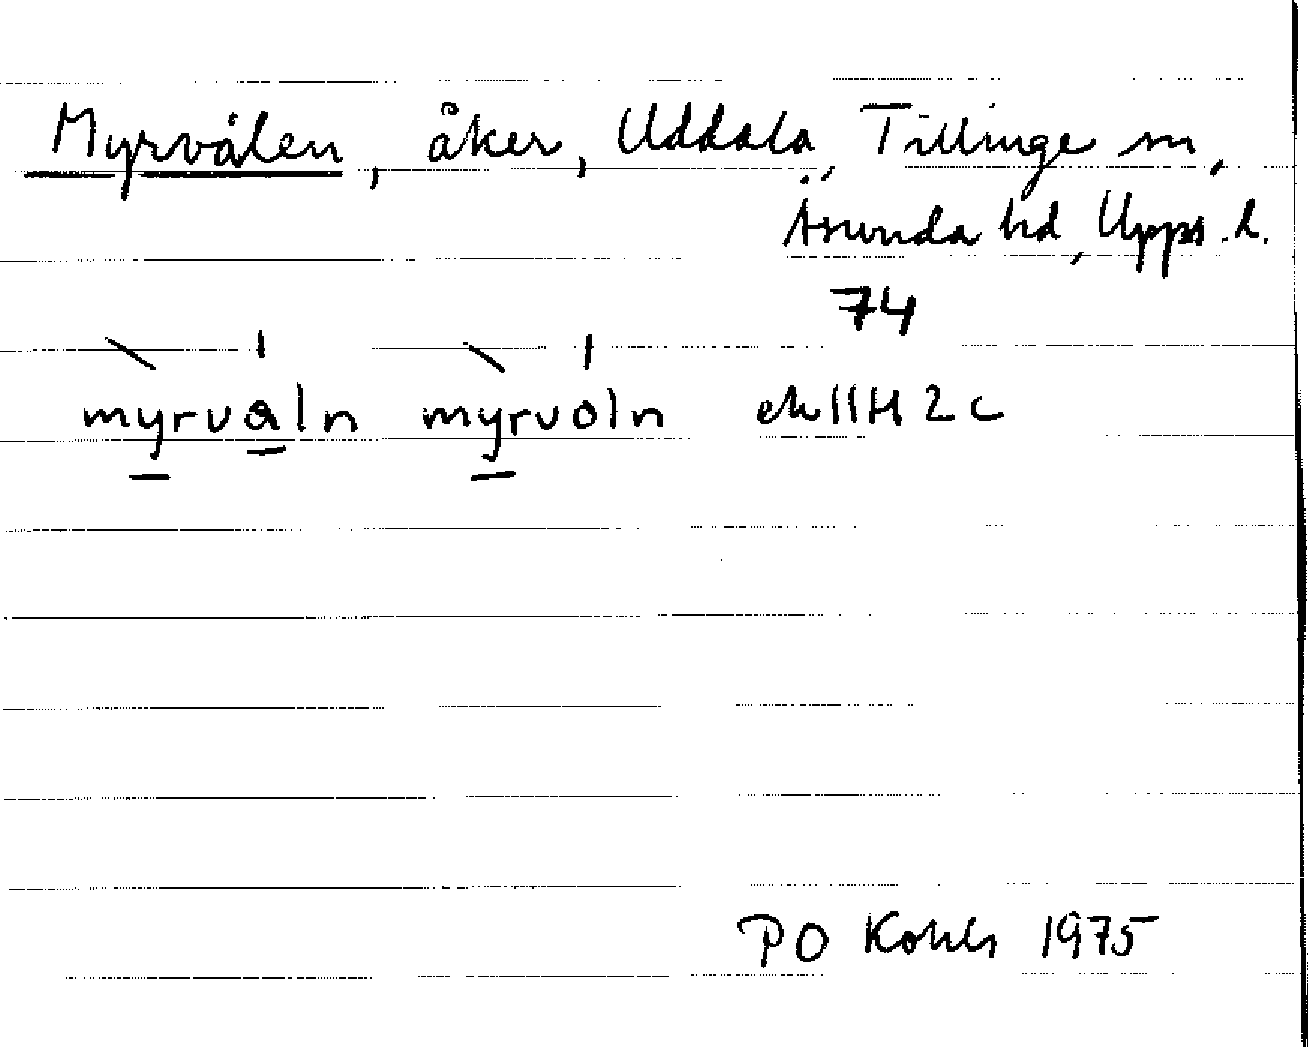 Myrvålen, åker, Uddala, Tillinge sn,
Åsunda hd, Upps. l.
74
myrvåln myrvoln ek 11H 2c
P O Kohls 1975